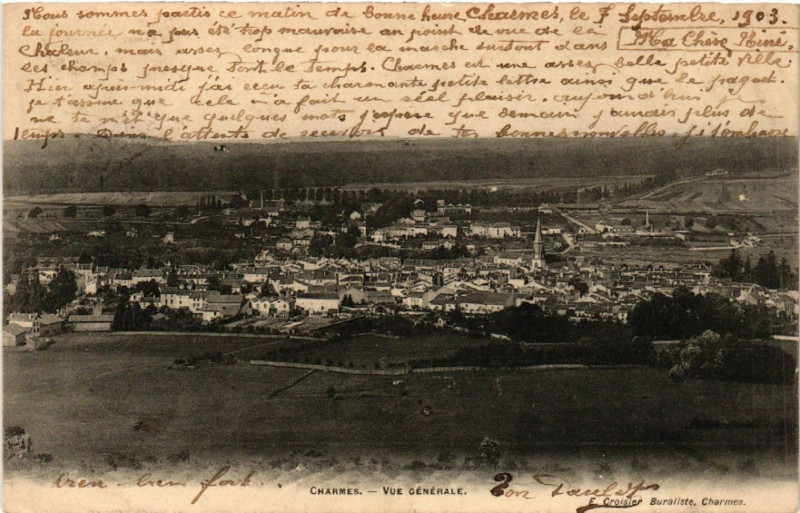 Nous sommes partis ce matin de bonne heure Charmes, le 7 Septembre, 1903.
la journée n'a pas été trop mauvaise au point de vue de la Ma Chère Mimi,
Chaleur, mais assez longue pour la marche surtout dans
les champs presque tout le temps. Charmes est une assez belle petite ville.
Hier après-midi j'ai reçu ta charmante petite lettre ainsi que le paquet.
je t'assure que cela m'a fait un réel plaisir, aujourd'hui je
ne te met que quelques mots j'espère que demain j'aurais plus de
temps. Dans l'attente de recevoir de tes bonnes nouvelles, je t'embrasse
bien bien fort. CHARMES. — VUE GÉNÉRALE. Ton
E. Croisier Buraliste, Charmes.